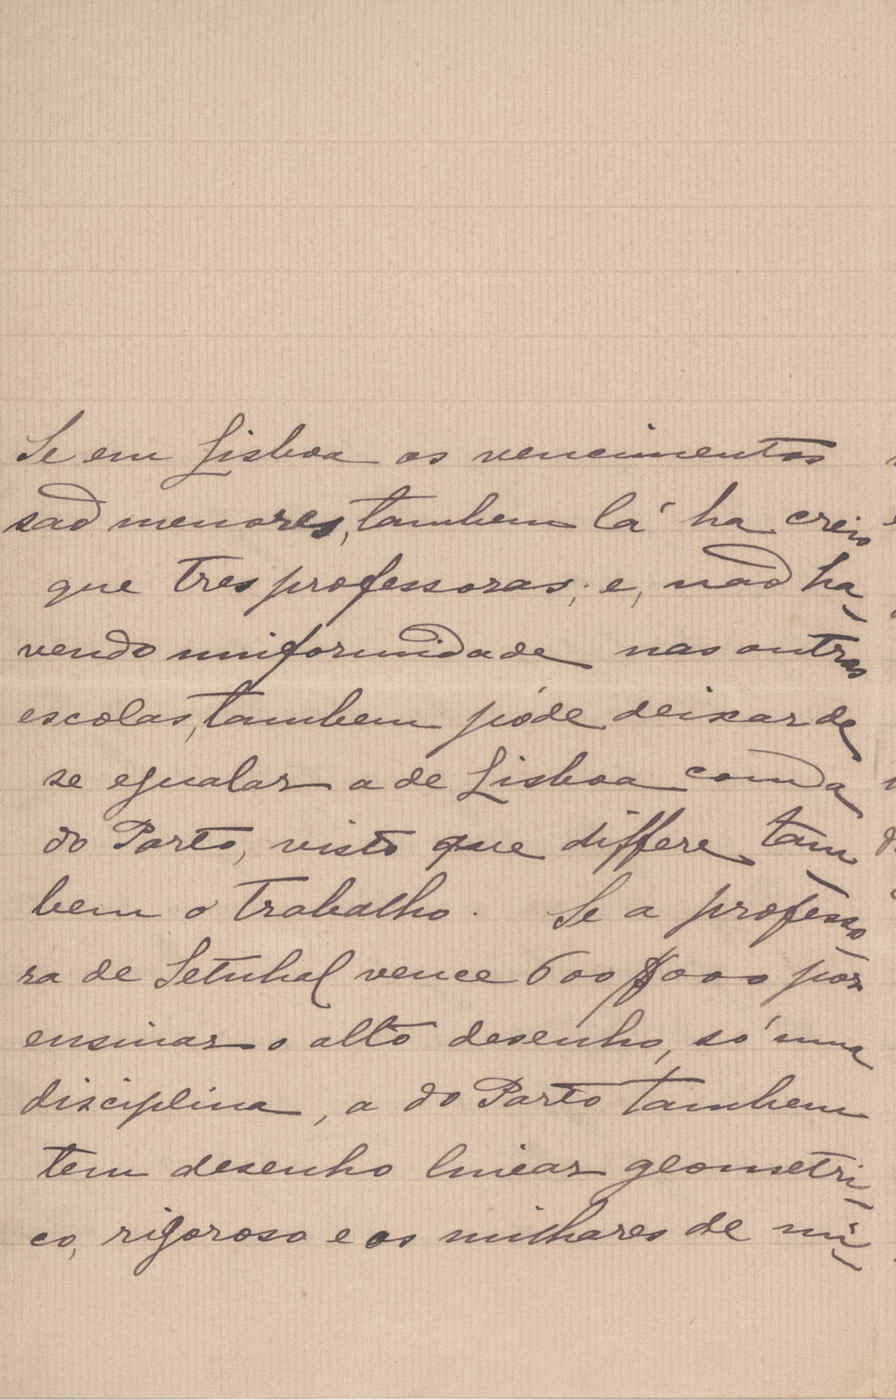 Se em Lisboa os vencimentos
são menores, tambem lá ha creio
que tres professoras; e, não ha-
vendo uniformidade nas outras
escolas, tambem póde deixar de
se egualar a de Lisboa com a
do Porto, visto que differe tam
bem o trabalho. Se a professo-
ra de Setubal vence 600$000 por
ensinar o alto desenho, só uma
disciplina, a do Porto tambem
tem desenho linear geometri-
co, rigoroso e os milhares de mi-